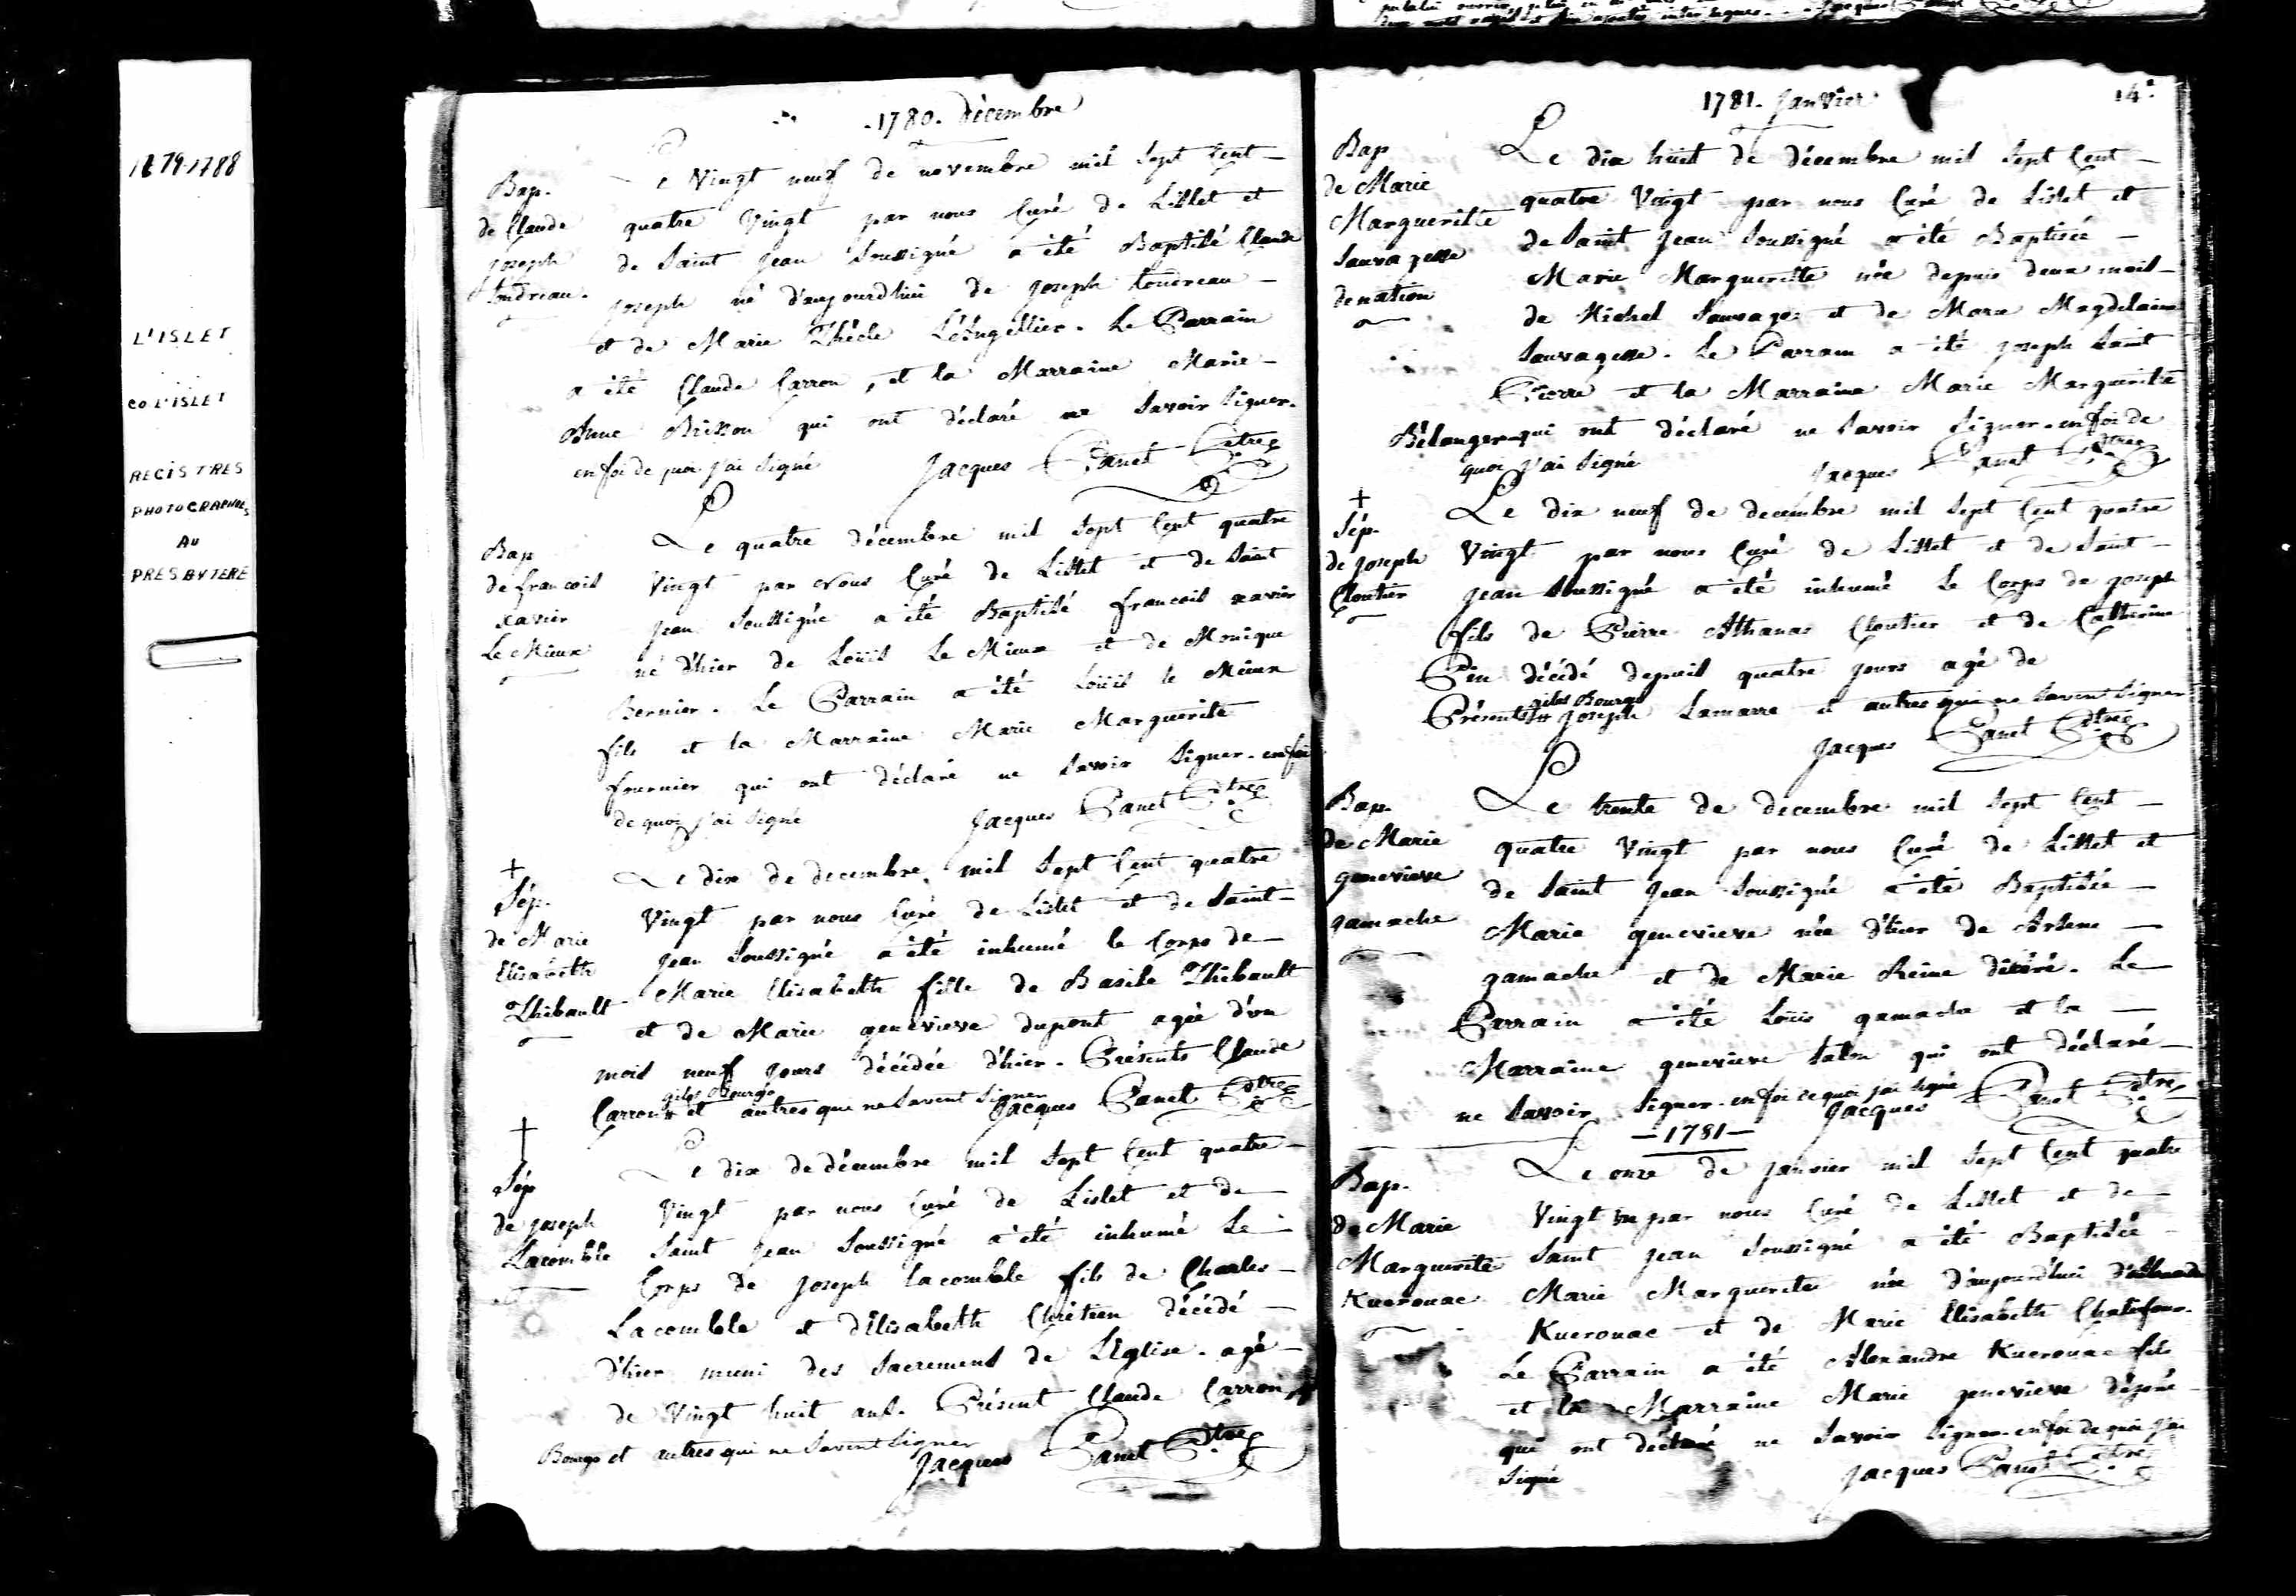 1679-1788
L'ISLET
CO L'ISLET
REGISTRES
PHOTOGRAPHIÉS
AU
PRESBYTERE
1780. décembre
Bap.
de Claude
joseph
tondreau.
Le Vingt neuf de novembre mil Sept Cent
quatre Vingt par nous Curé de Lislet et
de Saint jean Soussigné a été Baptisé Claude
joseph né d'aujourdhui de joseph tondreau
et de Marie Thècle Lesugellier. Le Parrain
a été Claude Carron, et la Marraine Marie
Anne Brisson qui ont déclaré ne Savoir Signer.
en foi de quoi j'ai Signé Jacques Panet Ptre
Bap
de francois
xavier
Le Mieux
Le quatre décembre mil Sept Cent quatre
Vingt par Nous Curé de Lislet et de Saint
jean Soussigné a été Baptisé francois xavier
né d'hier de Loüis Le Mieux et de Monique
Bernier. Le Parrain a été Loüis le Mieux
fils et la Marraine Marie Marguerite
fournier qui ont déclaré ne Savoir Signer. en foi
de quoi j'ai Signé Jacques Panet Ptre
†
Sép.
de Marie
Elisabeth
Thibault
Le dix de decembre mil Sept Cent quatre
Vingt par nous Curé de Lislet et de Saint
jean Soussigné a été inhumé le Corps de
Marie Elisabeth fille de Basile Thibault
et de Marie genevieve dupont agée d'un
mois neuf jours décédée d'hier. Présents Claude
giles Bourgo
Carron et autres qui ne Savent Signer Jacques Panet Ptre
†
Sép
de joseph
Lacomble
Le dix de décembre mil Sept Cent quatre
Vingt par nous Curé de Lislet et de
Saint jean Soussigné a été inhumé Le
Corps de joseph lacomble fils de Charles
Lacomble et d'Elisabeth Chrétien décédé
d'hier muni des Sacremens de L'Eglise. agé
de Vingt huit ans. Présent Claude Carron
Bourgo et autres qui ne Savent Signer
Jacques Panet Ptre
1781. janvier 14
Bap
de Marie
Marguerite
Sauvagesse
de nation
Le dix huit de décembre mil Sept Cent
quatre Vingt par nous Curé de Lislet et
de Saint jean Soussigné a été Baptisée
Marie Marguerite née depuis deux mois
de Michel Sauvage et de Marie Magdelaine
Sauvagesse. Le Parrain a été joseph Saint
Pierre et la Marraine Marie Marguerite
Bélanger qui ont déclaré ne Savoir Signer. en foi de
quoi j'ai Signé Jacques Panet Ptre
†
Sép.
de joseph
Cloutier
Le dix neuf de decembre mil Sept Cent quatre
Vingt par nous Curé de Lislet et de Saint
jean Soussigné a été inhumé Le Corps de joseph
fils de Pierre Athanas Cloutier et de Catherine
Pin décédé depuis quatre jours agé de
giles Bourgo
Présents joseph Lamarre et autres qui ne Savent Signer
Jacques Panet Ptre
Bap.
de Marie
genevieve
gamache
Le trente de decembre mil Sept Cent
quatre Vingt par nous Curé de Lislet et
de Saint jean Soussigné a été Baptisée
Marie genevieve née d'hier de Arsene
gamache et de Marie Reine
Le
Parrain a été Loüis gamache et la
Marraine genevieve qui ont déclaré
ne Savoir Signer. en foi de quoi j'ai Signé
Jacques Panet Ptre
—1781—
Bap.
de Marie
Marguerite
Kuerouac
Le onze de janvier mil Sept Cent quatre
Vingt un par nous Curé de Lislet et de
Saint jean Soussigné a été Baptisée
Marie Marguerite née d'aujourd'hui d'Alexandre
Kuerouac et de Marie Elisabeth Chalifour.
Le Parrain a été Alexandre Kuerouac fils
et la Marraine Marie genevieve
qui ont déclaré ne Savoir Signer. en foi de quoi j'ai
Signé Jacques Panet Ptre